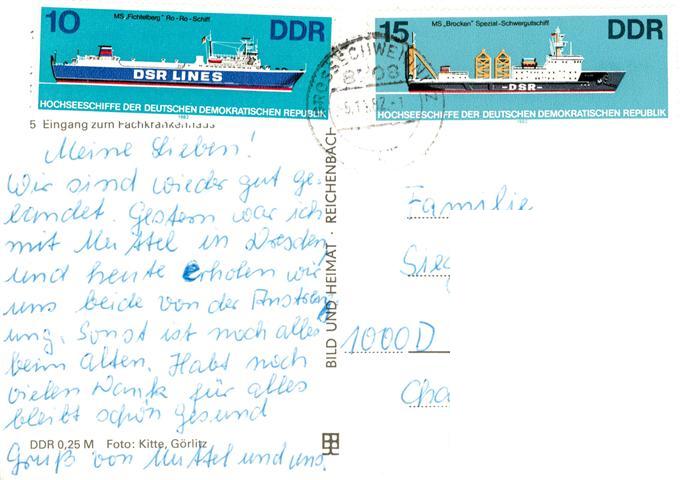 MS „Fichtelberg" Ro-Ro-Schiff
10 DDR
DSR LINES
HOCHSEESCHIFFE DER DEUTSCHEN DEMOKRATISCHEN REPUBLIK
1982
MS „Brocken" Spezial-Schwergutschiff
15 DDR
-DSR-
HOCHSEESCHIFFE DER DEUTSCHEN DEMOKRATISCHEN REPUBLIK
1982
5 Eingang zum Fachkrankenhaus
Meine Lieben!
Wir sind wieder gut ge-
landet. Gestern war ich
mit Muttel in Dresden
und heute erholen wir
uns beide von der Anstreng-
ung. Sonst ist noch alles
beim alten. Habt noch
vielen Dank für alles
bleibt schön gesund
Gruß von Muttel und uns.
DDR 0,25 M Foto: Kitte, Görlitz
BILD UND HEIMAT · REICHENBACH
Familie
Sieg
1000D
Cha